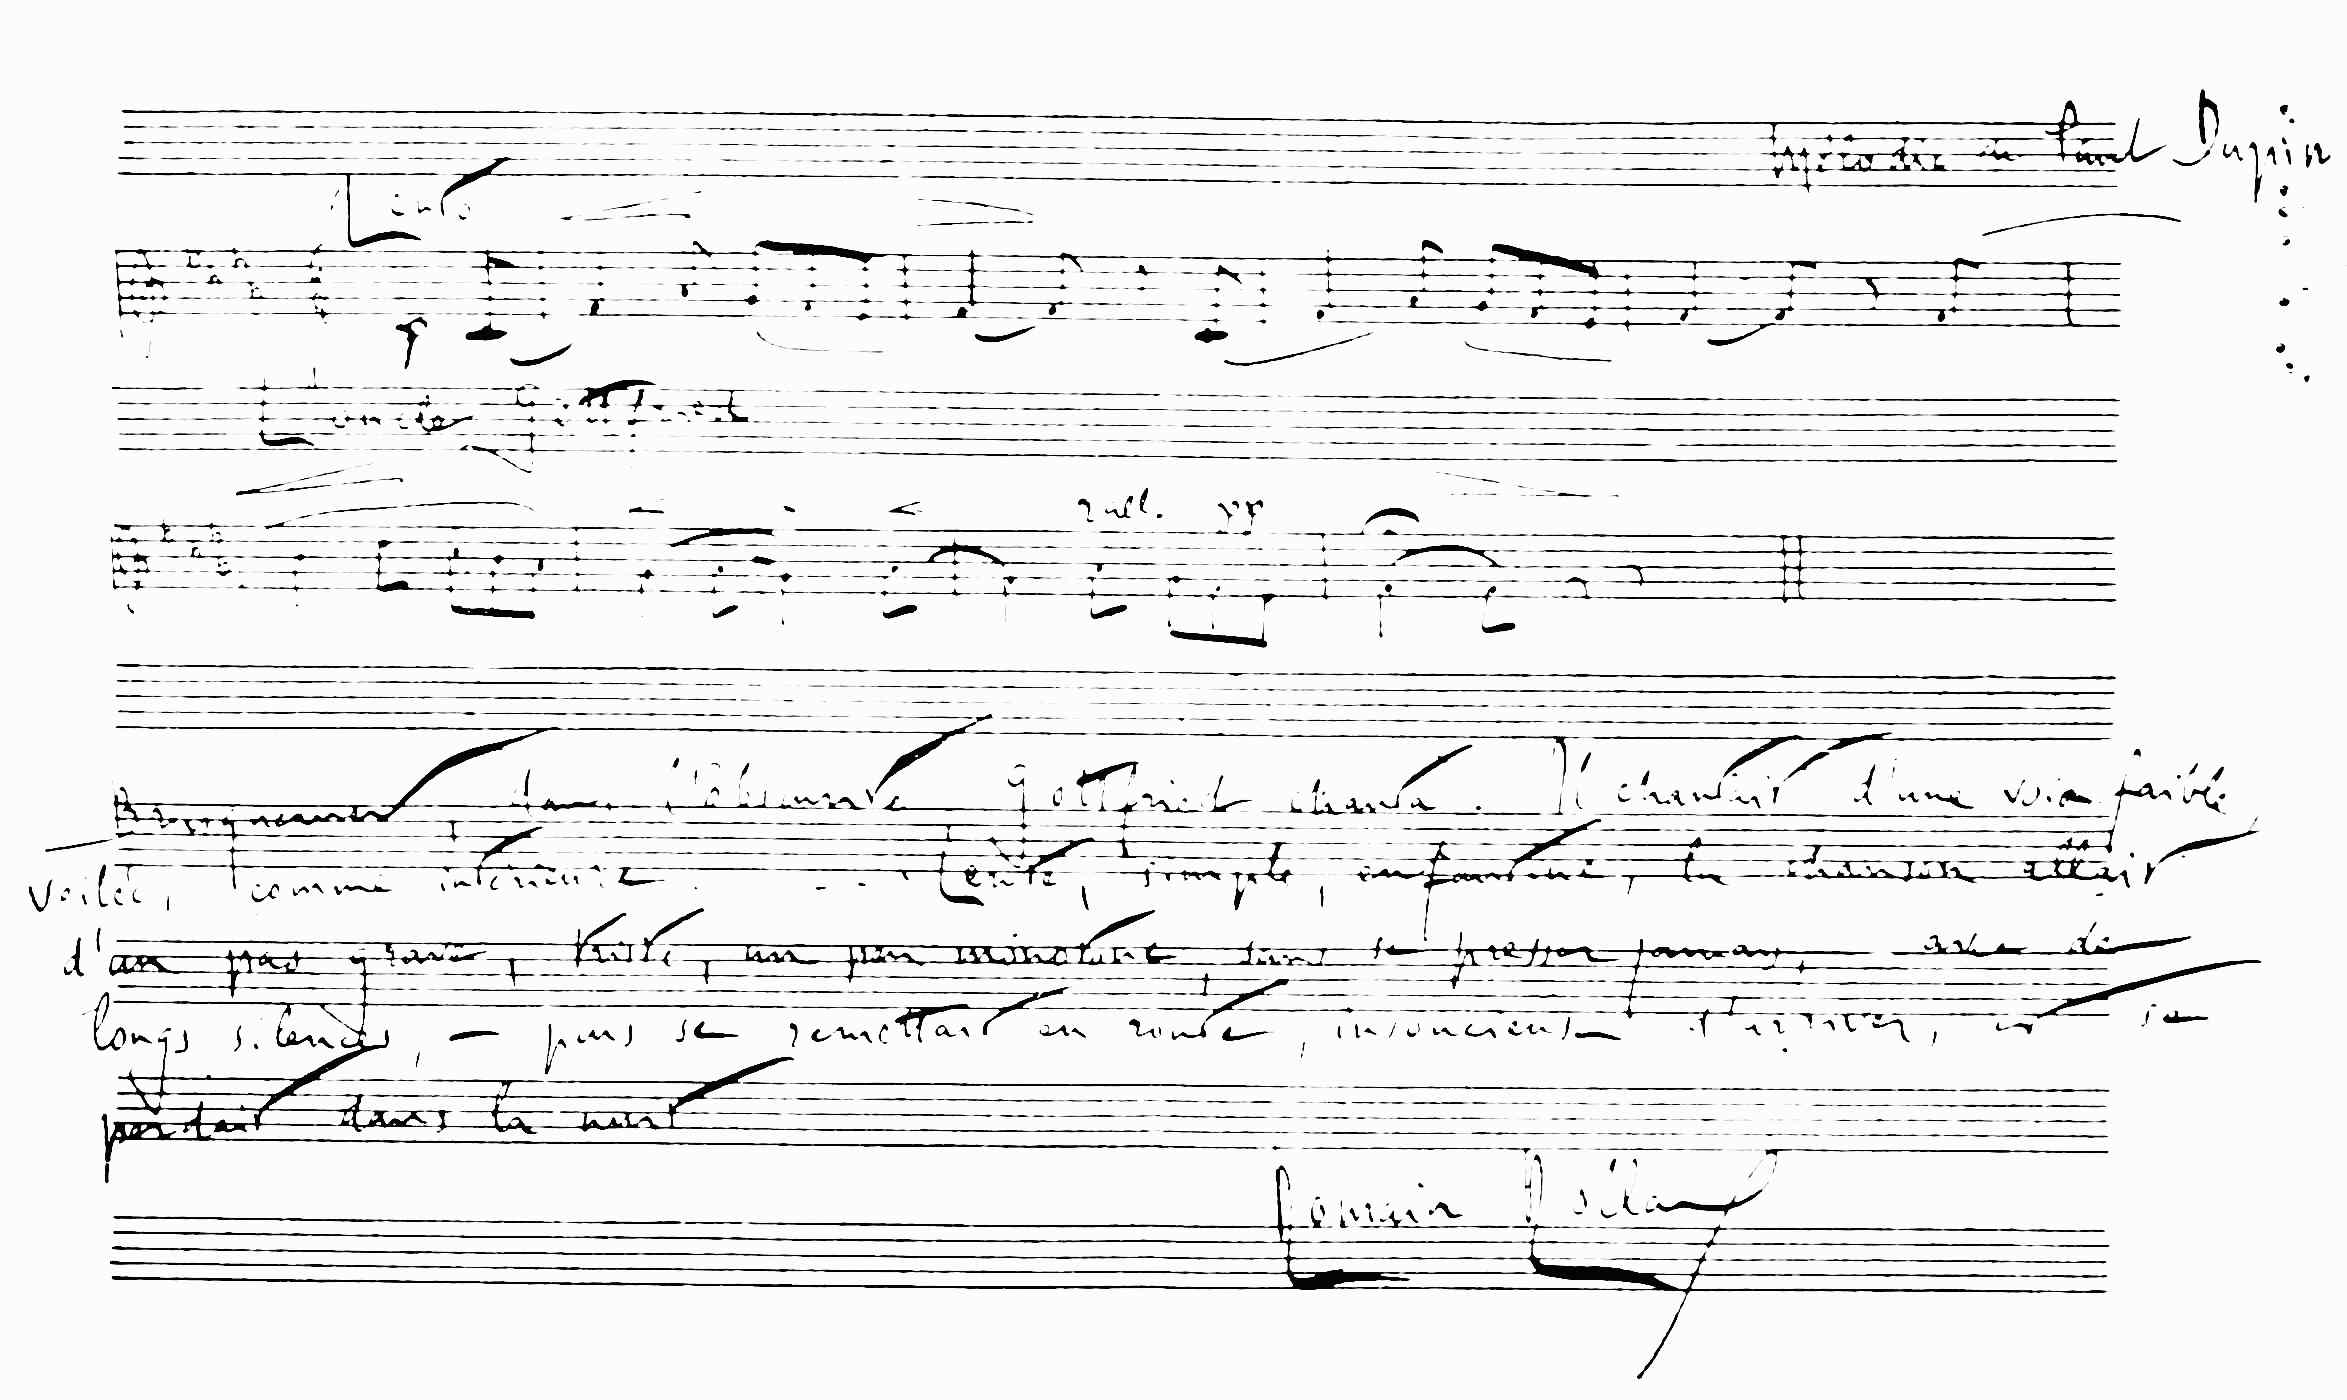 Mélodie de Paul Dupin
Lento
p
L'oncle Gottfried
rall. pp
Brusquement, dans l'obscurité Gottfried chanta. Il chantait d'une voix faible,
voilée, comme intérieure . . . Lente, simple, enfantine, la chanson allait
d'un pas grave, triste, un peu monotone, sans se presser jamais, avec de
longs silences, — puis se remettait en route, insoucieuse d'arriver, et se
perdait dans la nuit
Romain Rolland